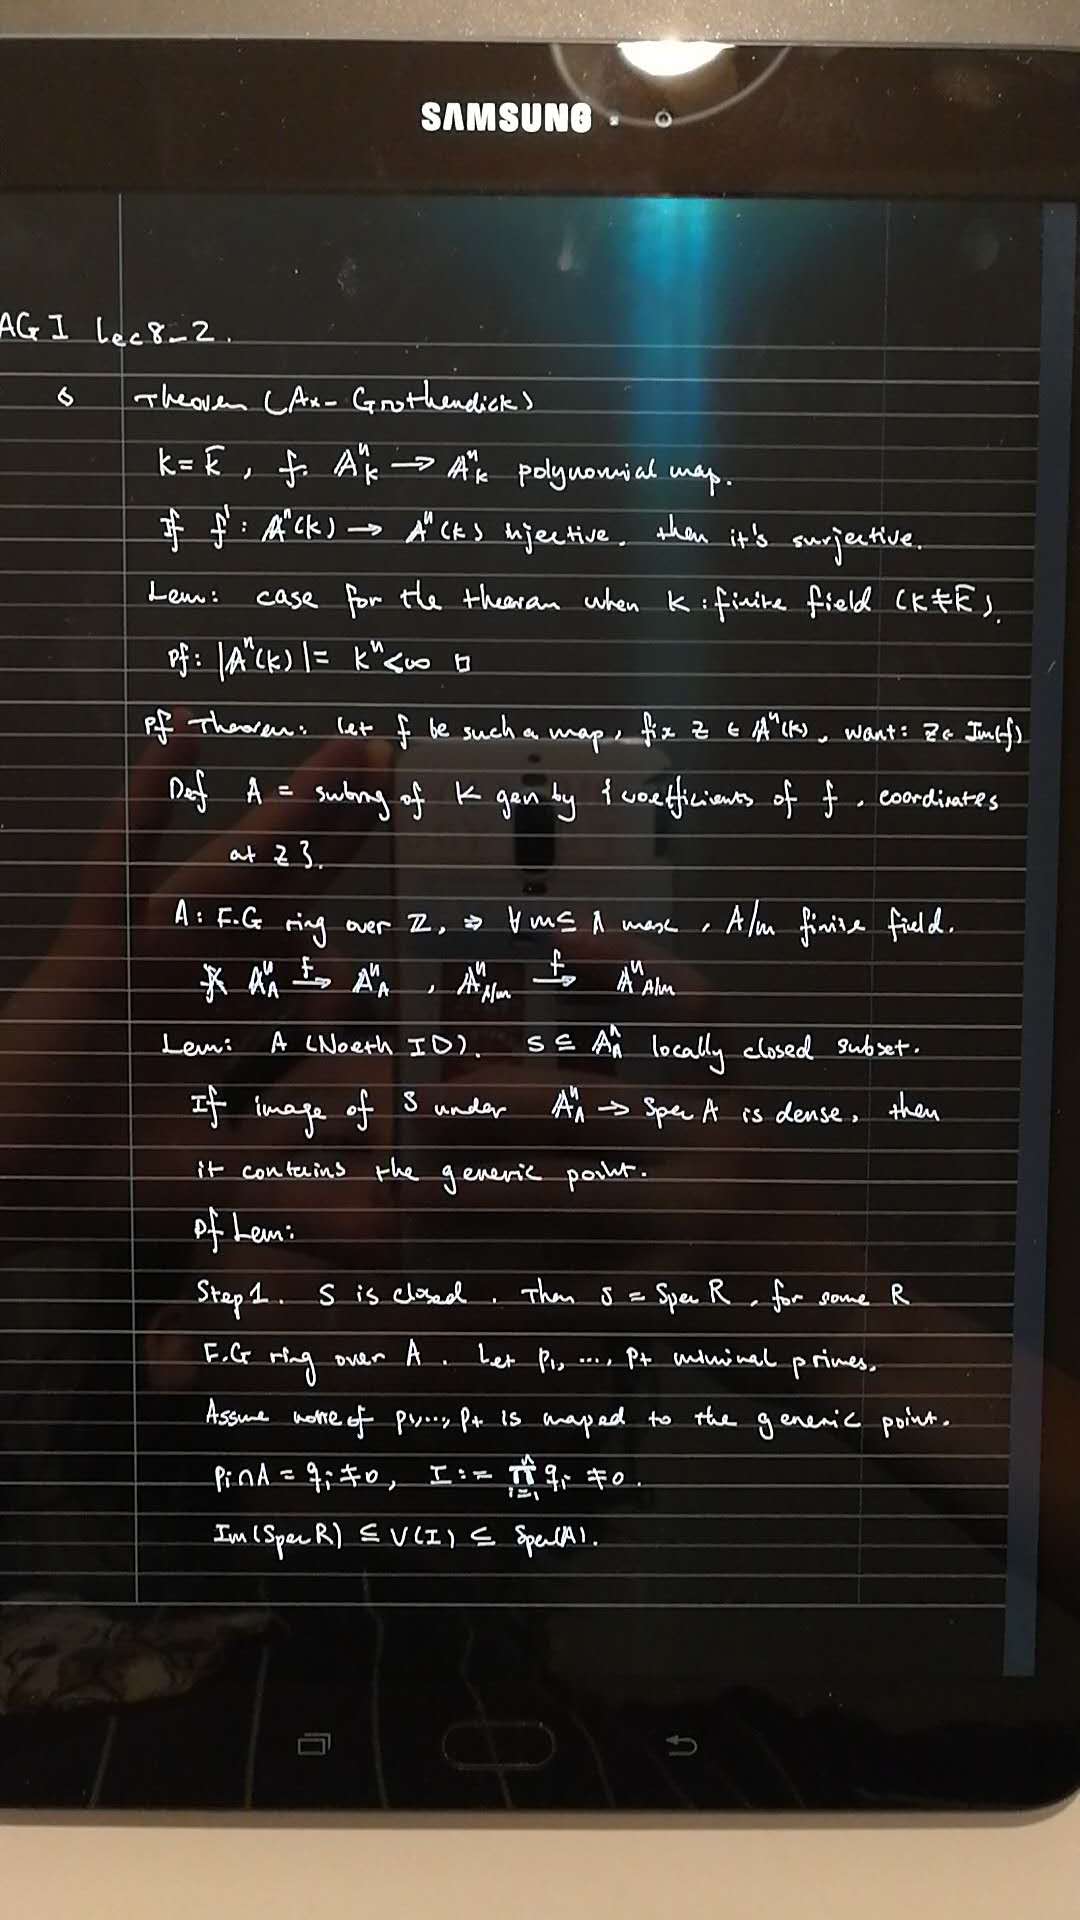 SAMSUNG
AG I Lec 8-2.
Theorem (Ax-Grothendick)
k = k̄, f: 𝔸ⁿ_k → 𝔸ⁿ_k polynomial map.
If f': 𝔸ⁿ(k) → 𝔸ⁿ(k) injective, then it's surjective.
Lem: case for the theoran when k: finite field (k ≠ k̄).
Pf: |𝔸ⁿ(k)| = kⁿ < ∞ □
Pf Theorem: Let f be such a map, fix z ∈ 𝔸ⁿ(k), want: z ∈ Im(f)
Def A = subring of k gen by {coefficients of f, coordinates
at z}.
A: F.G ring over ℤ, ⇒ ∀ m ⊆ A max, A/m finite field.
𝔸ⁿ_A →f 𝔸ⁿ_A, 𝔸ⁿ_A/m →f 𝔸ⁿ_A/m
Lem: A (Noeth ID). S ⊆ 𝔸ⁿ_A locally closed subset.
If image of S under 𝔸ⁿ_A → Spec A is dense, then
it contains the generic point.
Pf Lem:
Step 1. S is closed. Then S = Spec R, for some R
F.G ring over A. Let p₁, ..., pt minimal primes.
Assume none of p₁, ..., pt is maped to the generic point.
pi ∩ A = qi ≠ 0, I := ∏ⁿᵢ₌₁ qi ≠ 0.
Im(Spec R) ⊆ V(I) ⊆ Spec(A).